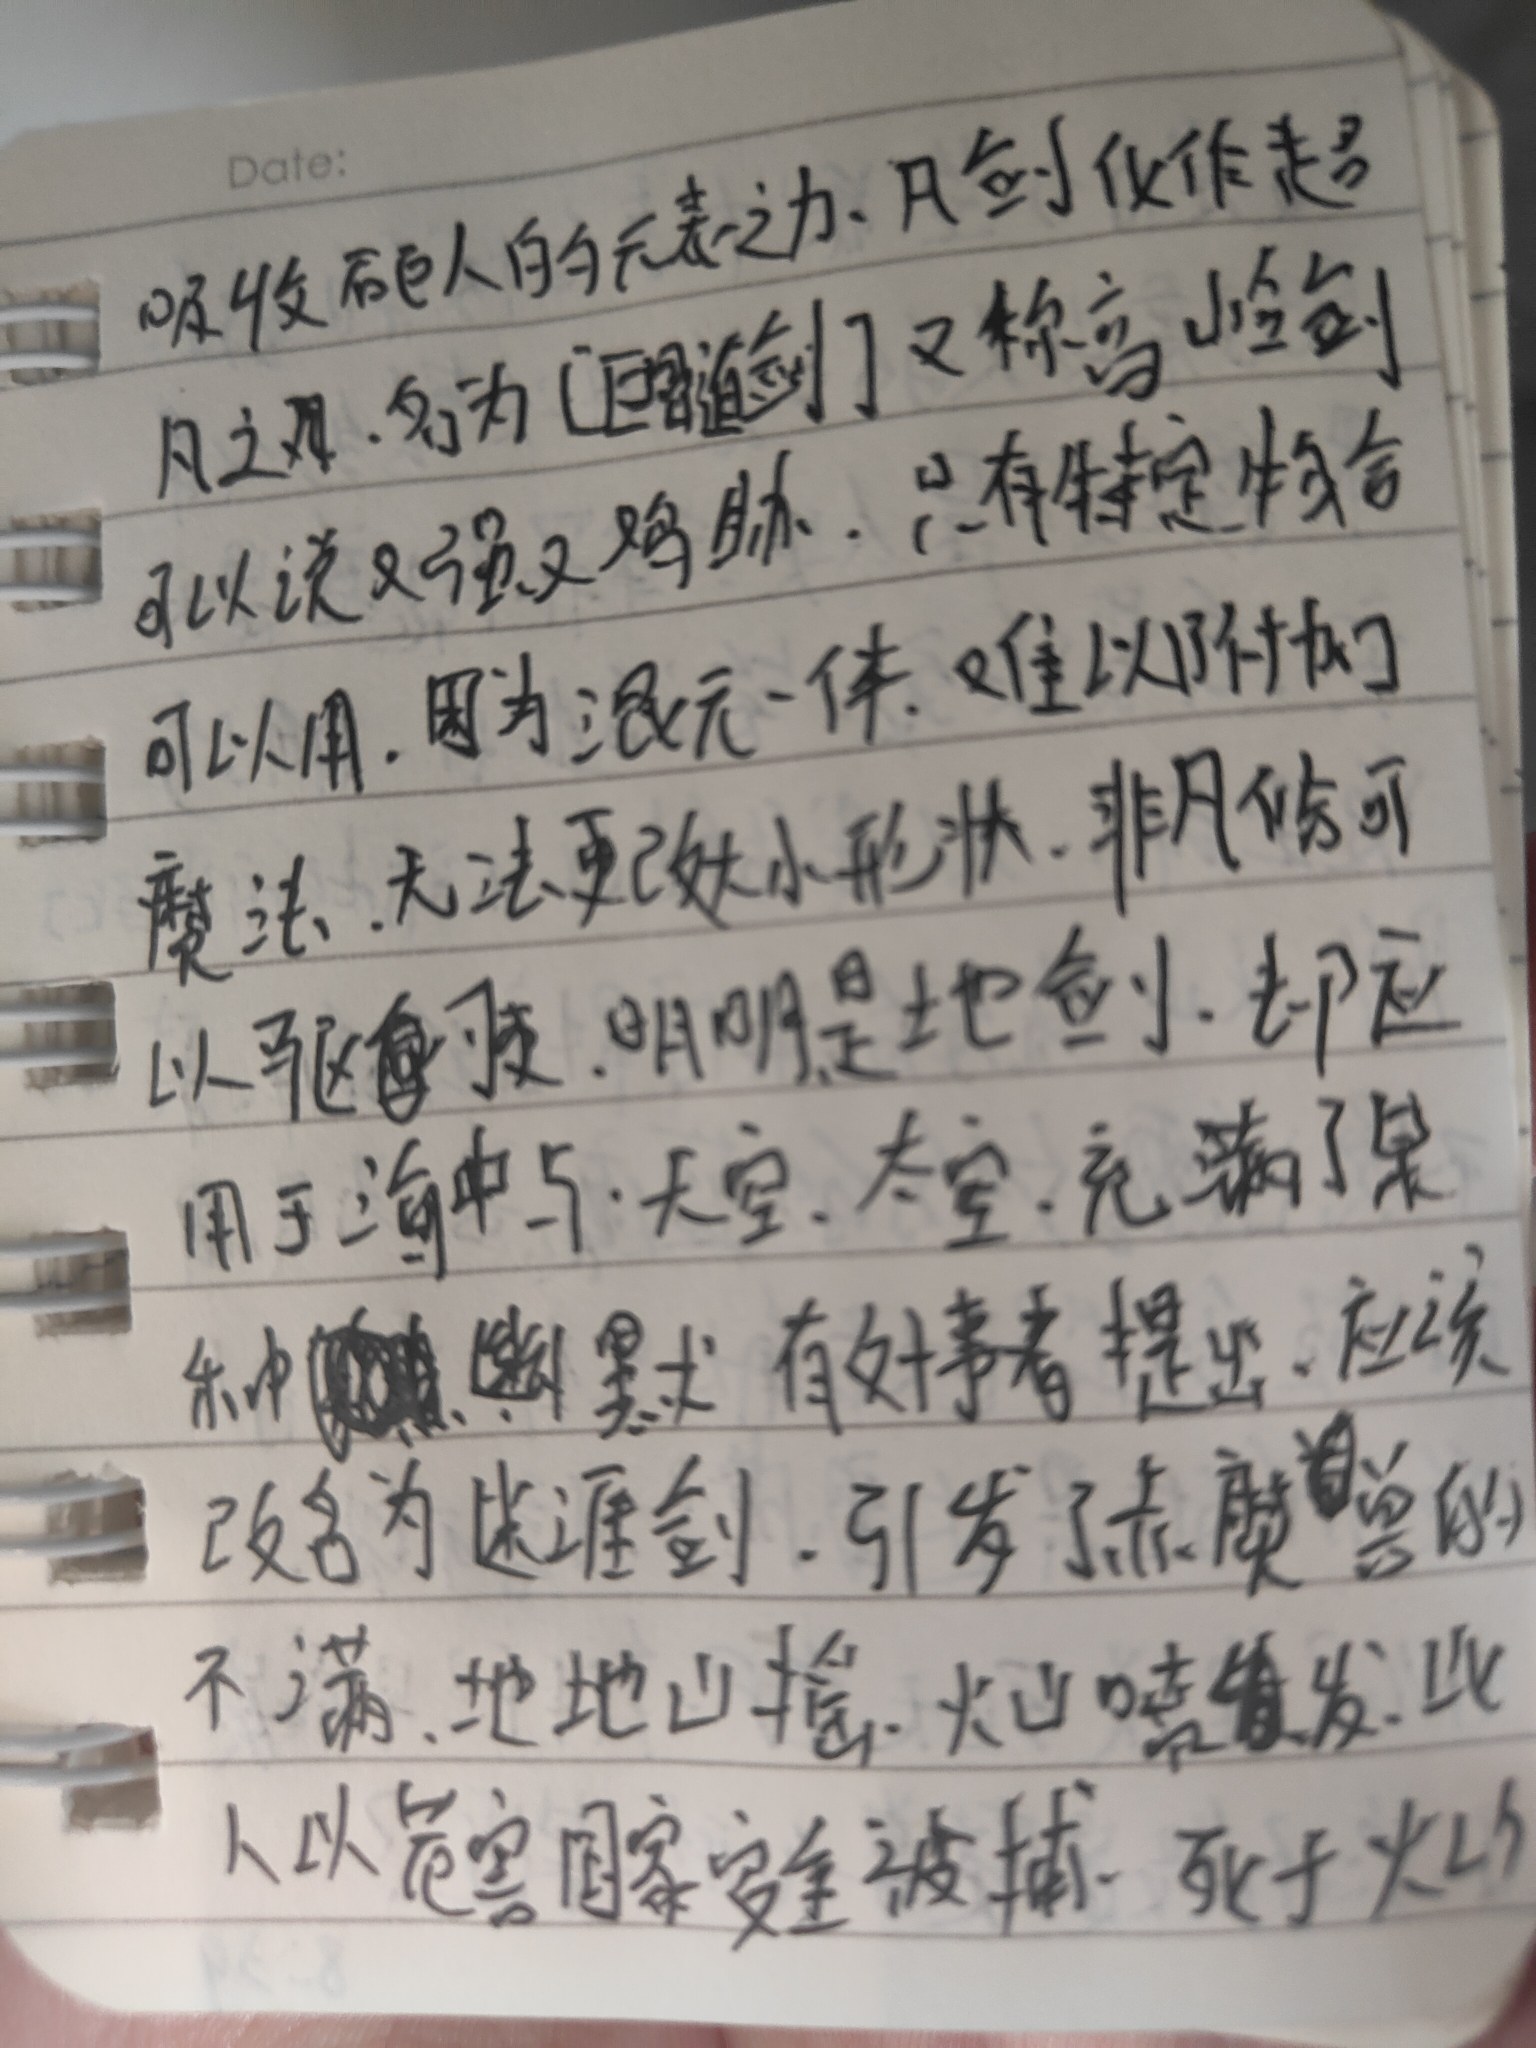 Date:
吸收后巨人的元素之力、凡剑化作超
凡之身.名为[巨阙道剑]又称高山险剑
可以说又强又鸡肋.只有特定场合
可以用.因为混元一体.难以附加
魔法.无法更改大小形状.非凡俗可
以驱使.明明是土地剑.却应
用于海中与.天空、太空.充满了某
种幽默 有好事者提出.应该
改名为迷涯剑.引发了赤魔兽的
不满、地地山摇.火山喷发.此
人以危害国家安全被捕.死于火山